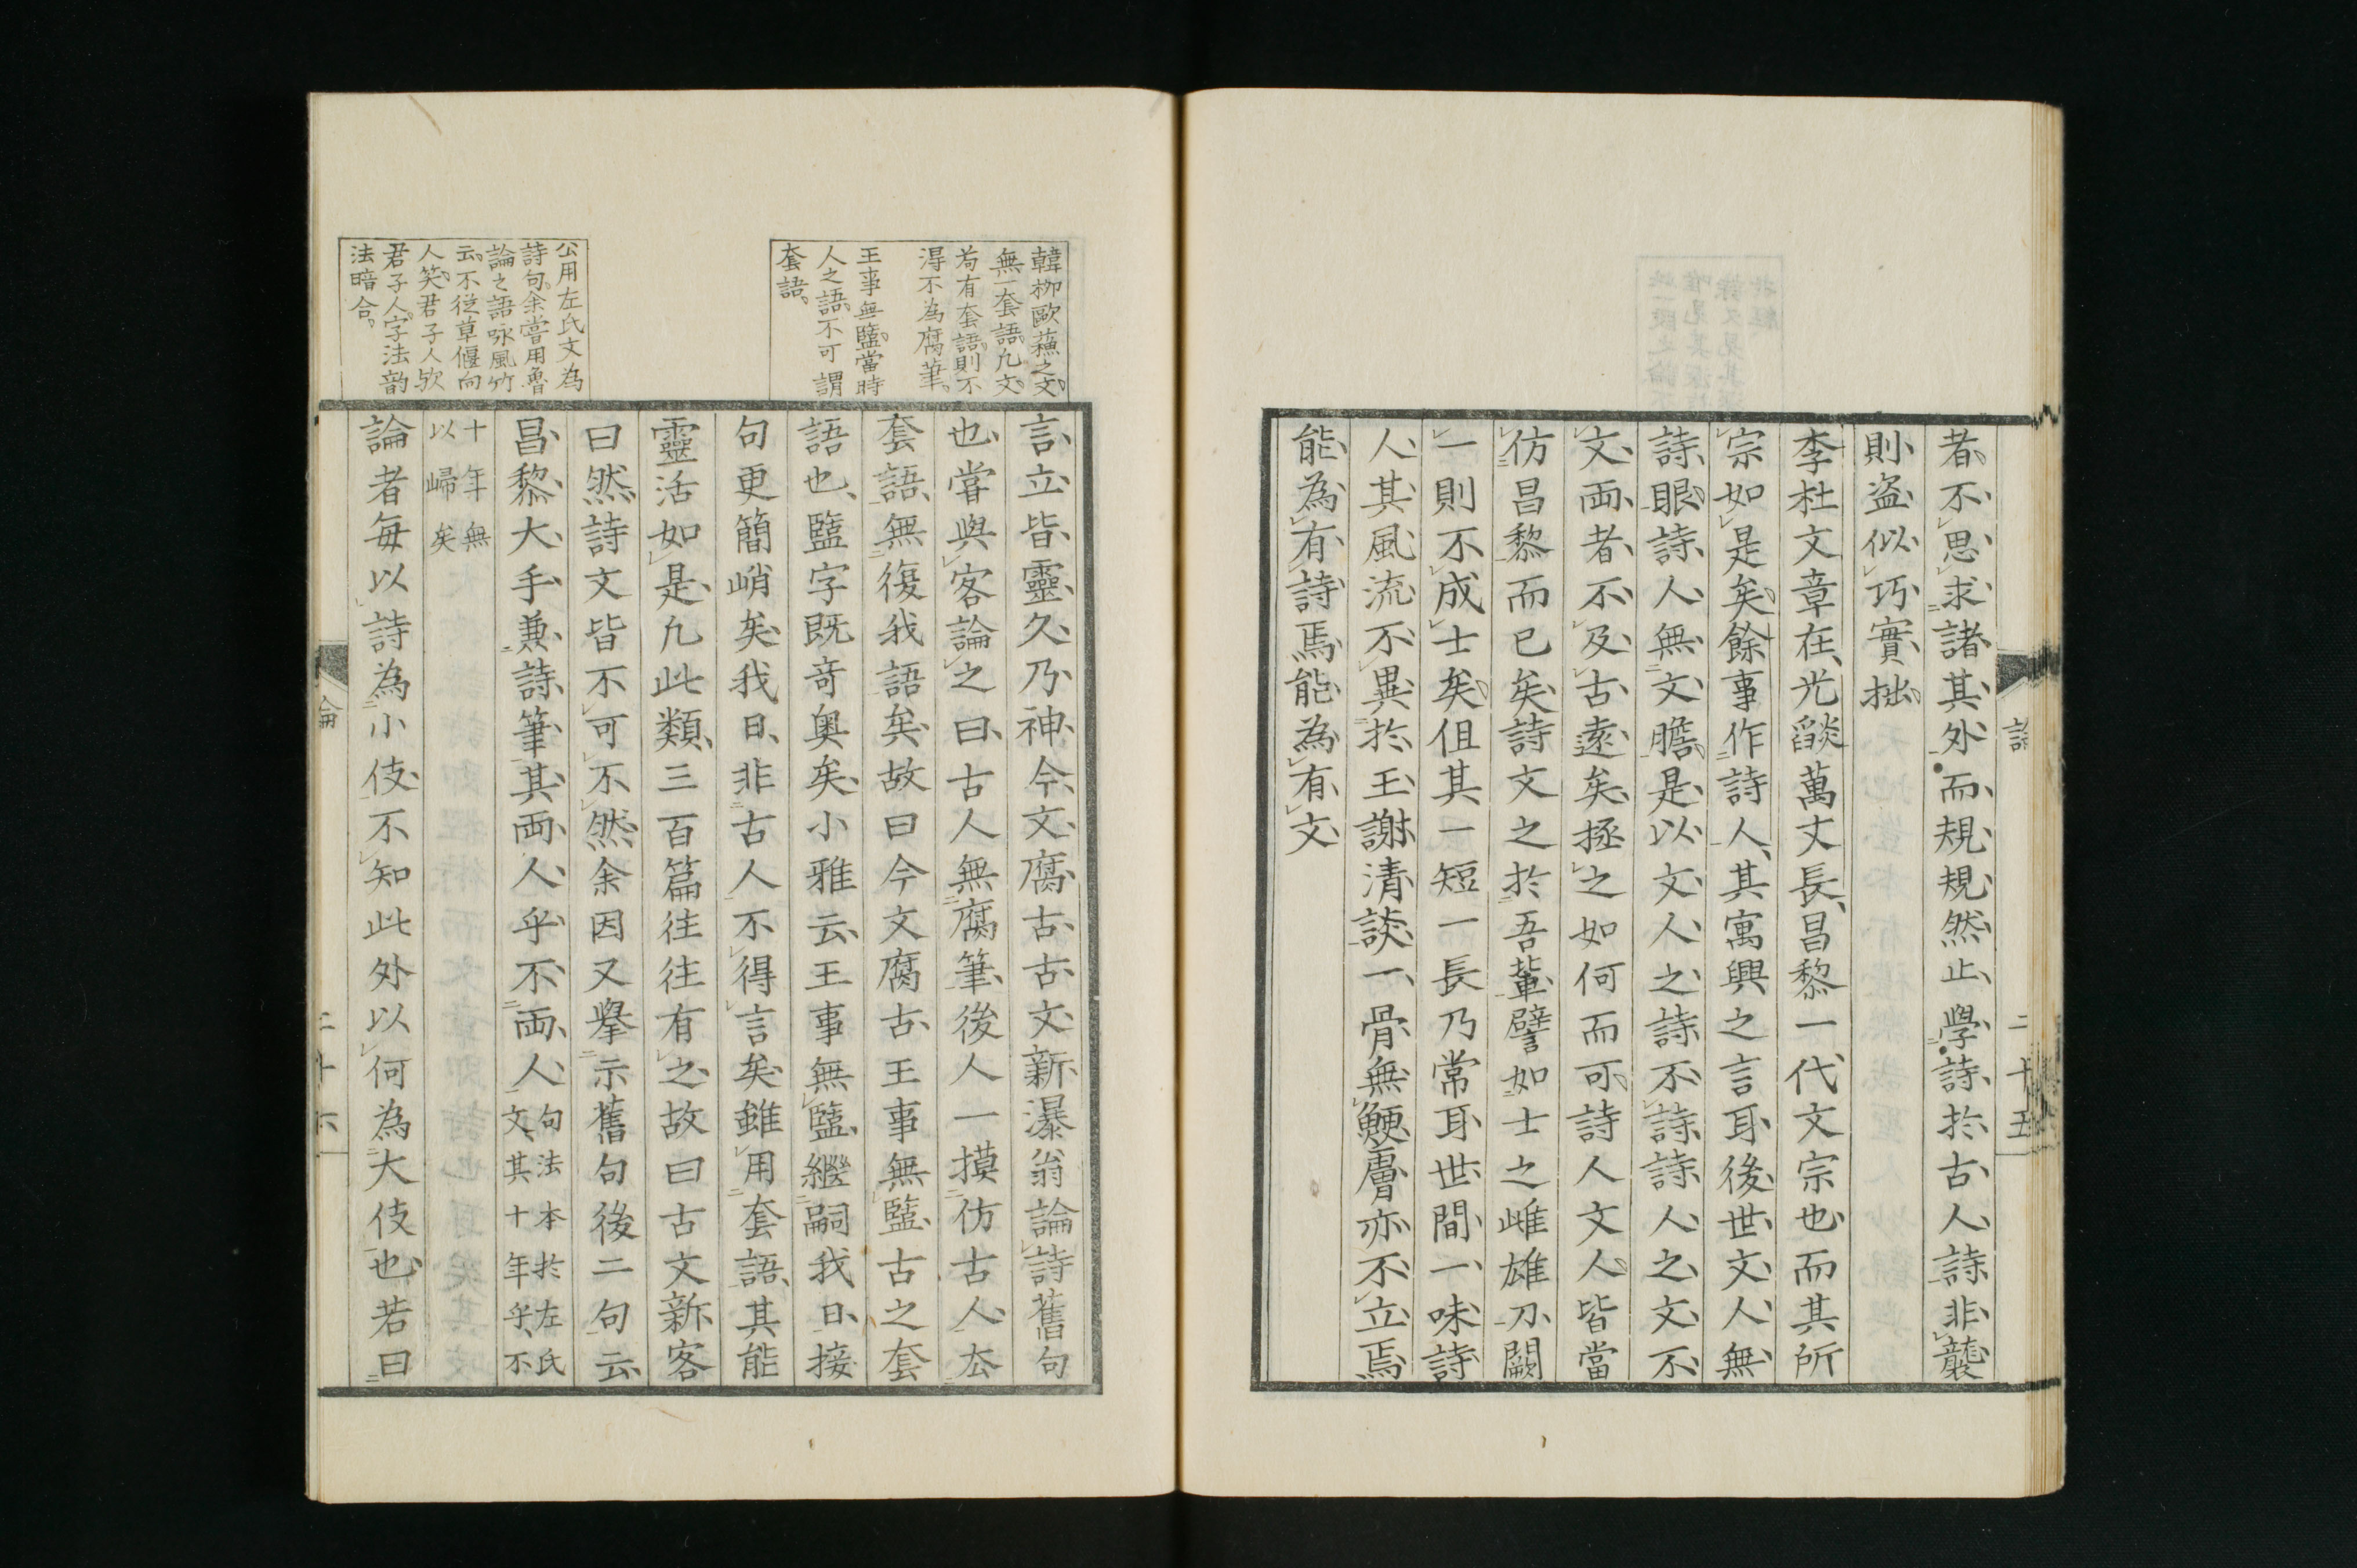 者不思求諸其外而規規然止學詩於古人詩非襲
則盗似巧實拙
李杜文章在光燄萬丈長昌黎一代文宗也而其所
宗如是矣餘事作詩人其寓興之言耳後世文人無
詩眼詩人無文膽是以文人之詩不詩詩人之文不
文両者不及古遠矣拯之如何而可詩人文人皆當
仿昌黎而已矣詩文之於吾輩譬如士之雌雄刀闕
一則不成士矣但其一短一長乃常耳世間一味詩
人其風流不異於王謝清談一骨無鯁膚亦不立焉
能為有詩焉能為有文
二十五
韓柳歐蘓之文
無一套語凢文
苟有套語則不
得不為腐筆
王事無盬當時
人之語不可謂
套語
公用左氏文為
詩句余嘗用魯
論之語咏風竹
云不從草偃向
人笑君子人欤
君子人字法韵
法暗合
言立皆靈久乃神今文腐古古文新瀑翁論詩舊句
也嘗與客論之曰古人無腐筆後人一摸仿古人厺
套語無復我語矣故曰今文腐古王事無盬古之套
語也盬字既奇奥矣小雅云王事無盬繼嗣我日接
句更簡峭矣我日非古人不得言矣雖用套語其能
靈活如是凢此類三百篇往往有之故曰古文新客
曰然詩文皆不可不然余因又擧示舊句後二句云
昌黎大手兼詩筆其両人乎不両人句法本於左氏
文其十年乎不
十年無
以歸矣
論者每以詩為小伎不知此外以何為大伎也若曰
論
二十六